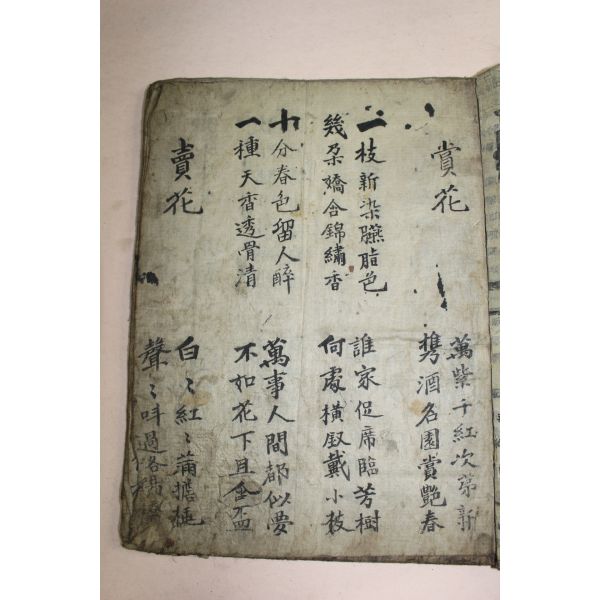 賞花
萬紫千紅次第新
携酒名園賞艶春
二枝新染臙脂色
幾朶嬌含錦繡香
誰家促席臨芳樹
何處橫釵戴小枝
十分春色留人醉
一種天香透骨清
萬事人間都似夢
不如花下且金盃
賣花
白〻紅〻滿擔
聲〻呌過